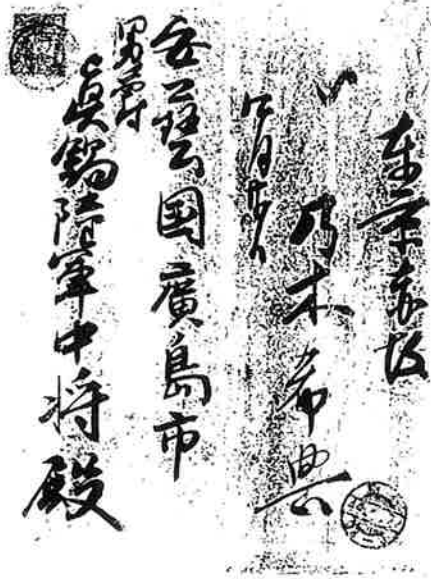 東京赤坂
乃木希典
安藝国廣島市
男爵
眞鍋陸軍中将殿